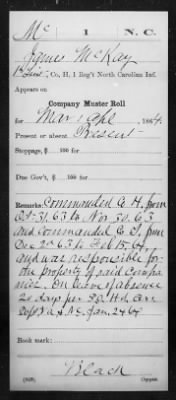 Mc 1 N.C.
James McKay
1" Lieut., Co. H, 1 Reg't North Carolina Inf.
Appears on
Company Muster Roll
for Mar & Apl, 1864.
Present or absent Present
Stoppage, $ 100 for
Due Gov't, $ 100 for
Remarks: Commanded Co H. from
Oct. 31. 63 to Nov. 30. 63
and commanded Co
Dec 2d 63 to Feb 15, 64,
and was responsible for
the property of said compa
nies. On leave of absence
20 days per S.O. Hd. Qrs.
Va & N.C. Jan. 24 64
Book mark:
Black
Copyist.